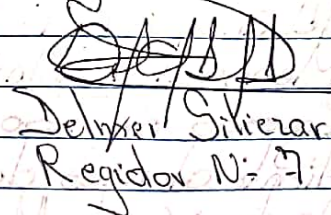 Delmer Siliezar
Regidor N:- 7